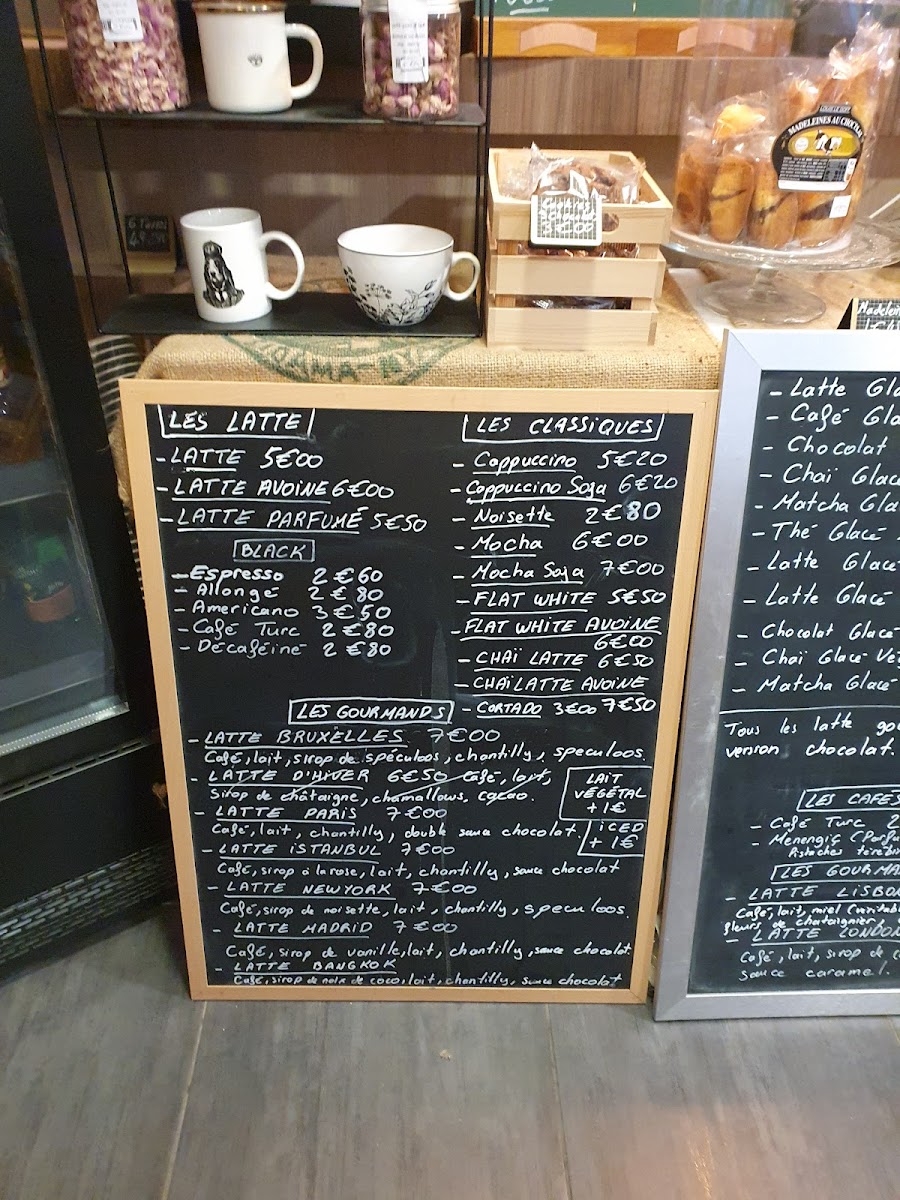 MADELEINES AU CHOCOLAT
LES LATTE
- LATTE 5€00
- LATTE AVOINE 6€00
- LATTE PARFUMÉ 5€50
BLACK
- Espresso 2€60
- Allongé 2€80
- Americano 3€50
- Café Turc 2€80
- Décaféiné 2€80
LES CLASSIQUES
- Cappuccino 5€20
- Cappuccino Soja 6€20
- Noisette 2€80
- Mocha 6€00
- Mocha Soja 7€00
- FLAT WHITE 5€50
- FLAT WHITE AVOINE
6€00
- CHAÏ LATTE 6€50
- CHAÏ LATTE AVOINE
- CORTADO 3€00 7€50
LES GOURMANDS
- LATTE BRUXELLES 7€00
Café, lait, sirop de spéculoos, chantilly, speculoos.
- LATTE D'HIVER 6€50 Café, lait,
Sirop de châtaigne, chamallows, cacao.
- LATTE PARIS 7€00
Café, lait, chantilly, double sauce chocolat.
- LATTE iSTANBUL 7€00
Café, sirop à la rose, lait, chantilly, sauce chocolat
- LATTE NEW YORK 7€00
Café, sirop de noisette, lait, chantilly, speculoos.
- LATTE MADRID 7€00
Café, sirop de vanille, lait, chantilly, sauce chocolat.
- LATTE BANGKOK
Café, sirop de noix de coco, lait, chantilly, sauce chocolat
LAIT
VÉGÉTAL
+ 1€
iCED
+ 1€
- Latte Gla
- Café Gla
- Chocolat
- Chaï Glacé
- Matcha Gla
- Thé Glacé
- Latte Glacé
- Latte Glacé
- Chocolat Glacé
- Chaï Glacé Vé
- Matcha Glacé
Tous les latte gou
version chocolat.
LES CAFÉS
- Café Turc 2
- Menengiç (Parfu
Pistaches térébin
LES GOURMA
- LATTE LISBON
Café, lait, miel (véritab
fleurs de chataignier
- LATTE LONDON
Café, lait, sirop de c
sauce caramel.